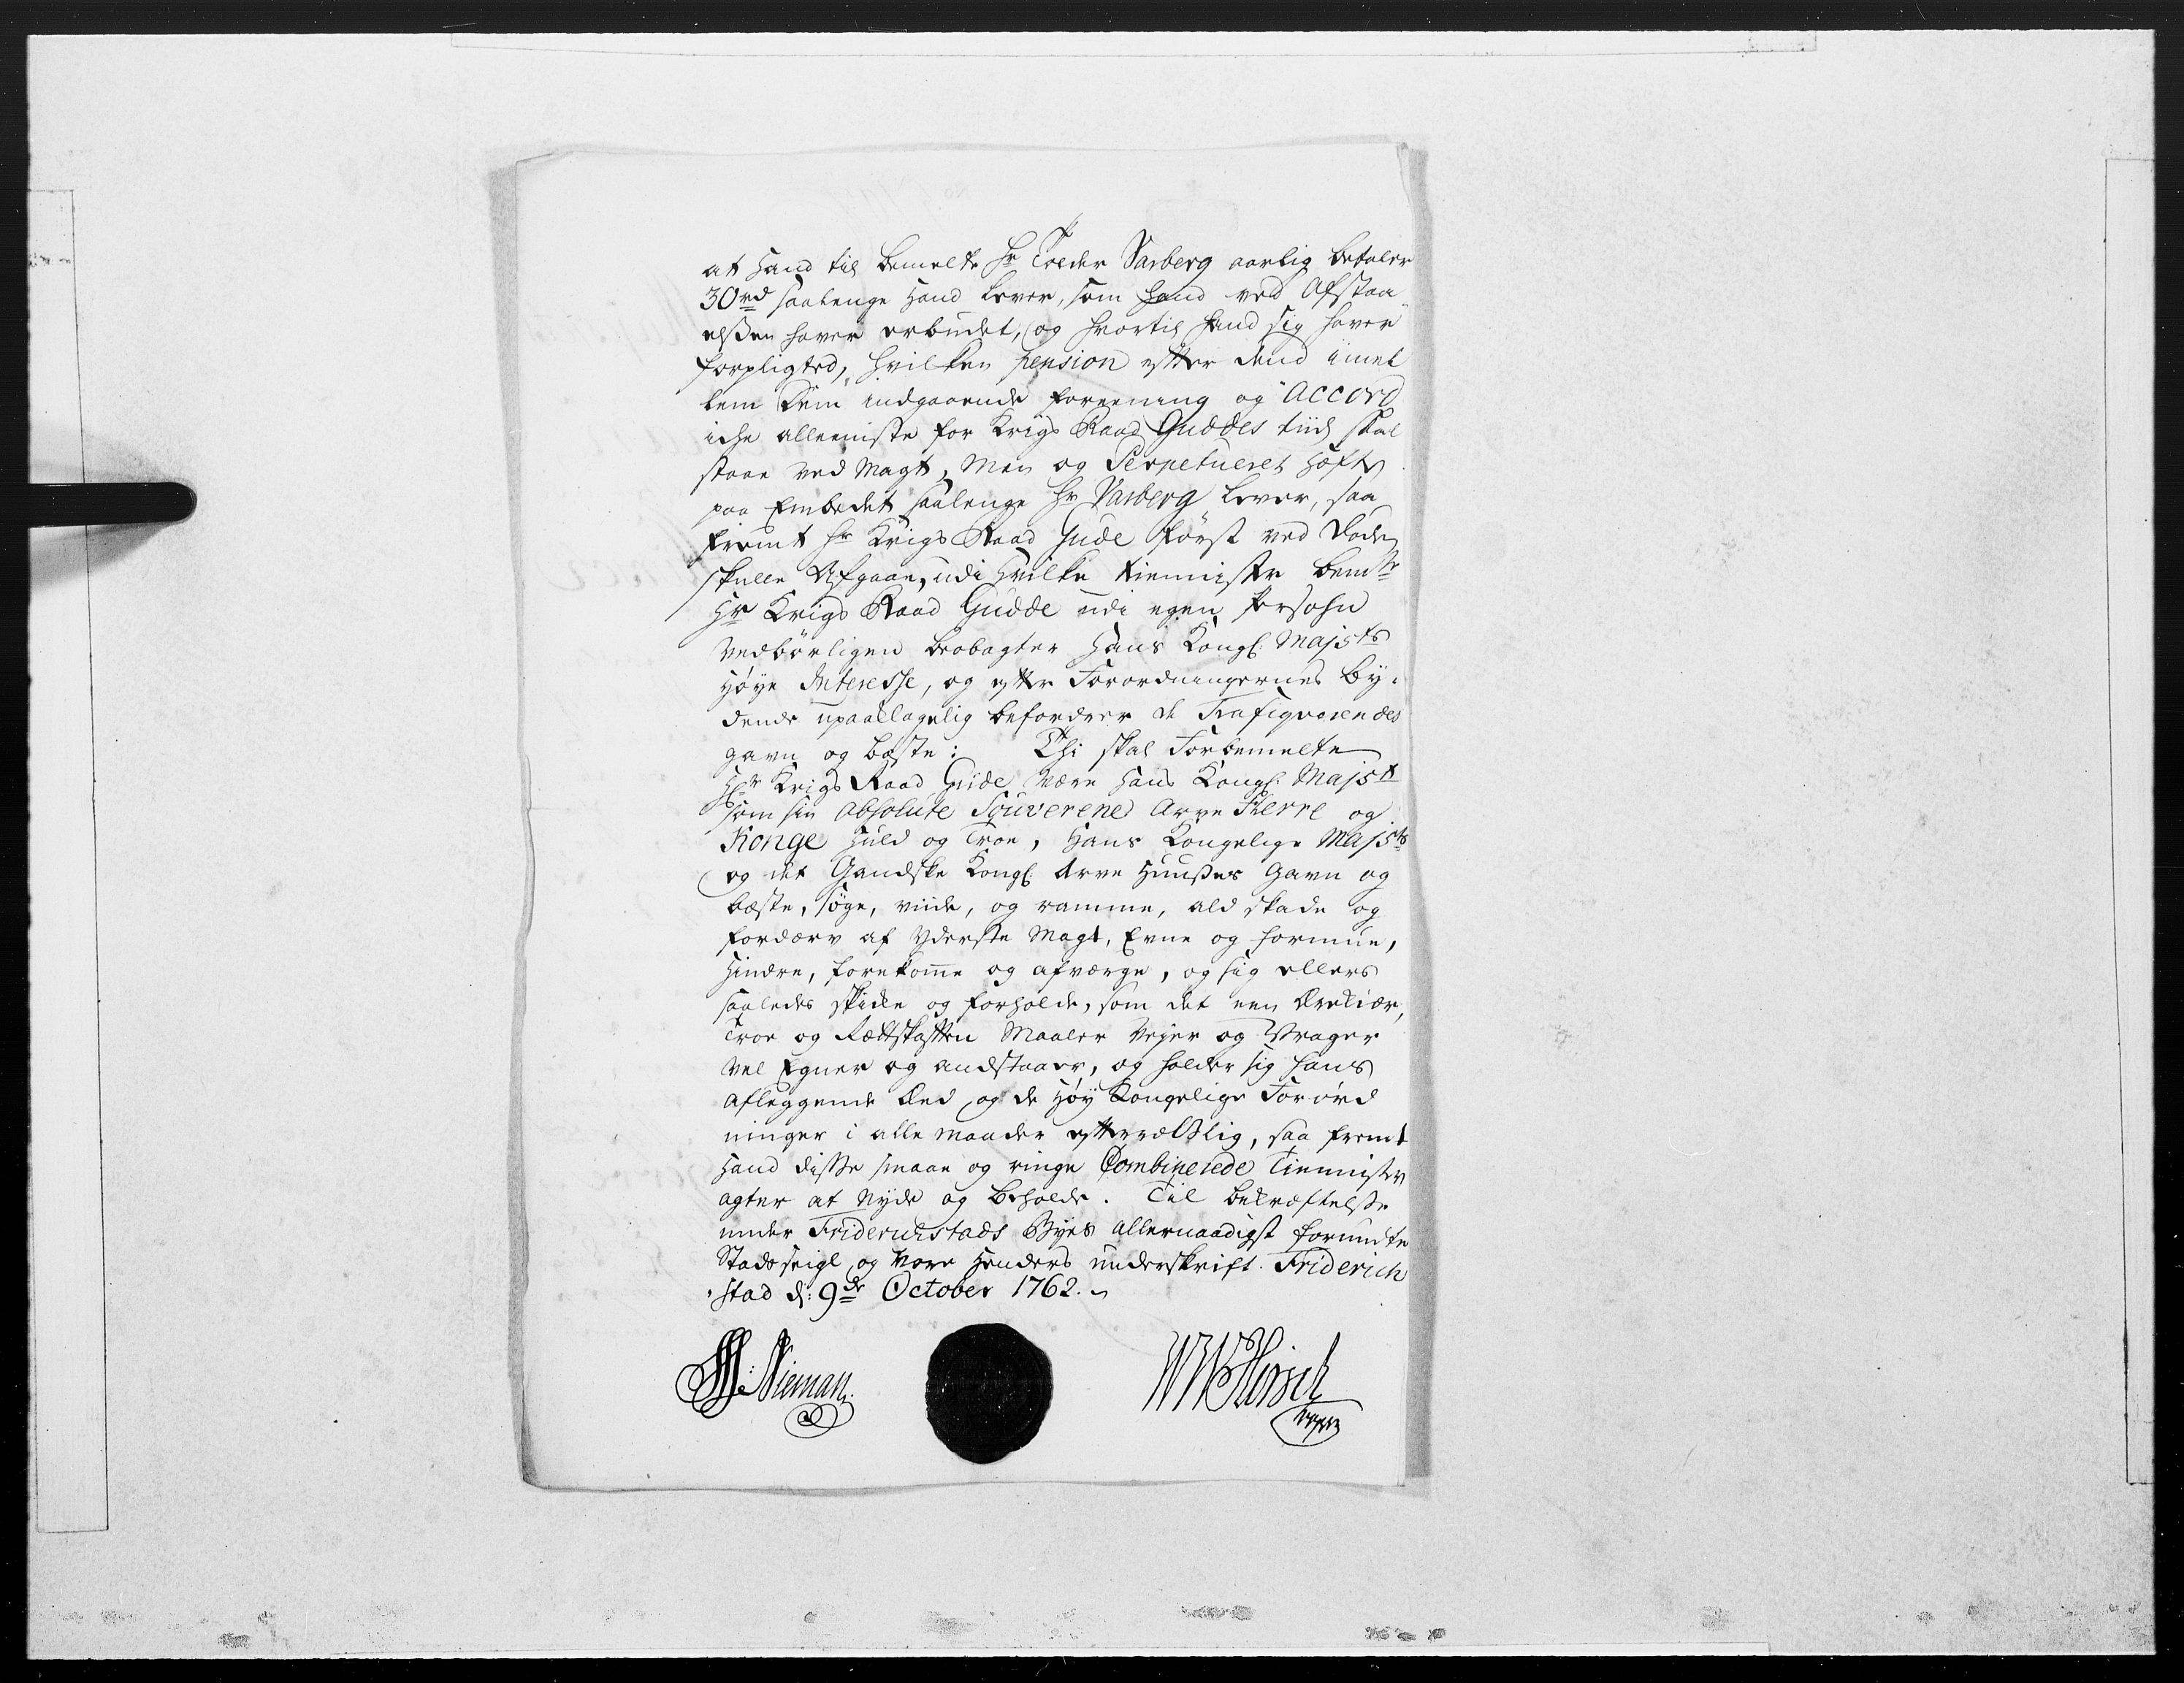 at Hand til bemelte Hr Toelder Varberg aarlig betaler
30rd saalenge Hand lever, som Hand ved Afstaa
elßen haver erbudet, og hvortil Hand sig haver
forpligted, hvilken pension efter dend imel
lem dem indgaaende foreening og Accord
iche alleeniste for Krigs Raad Guddes tiid skal
staae ved Magt, Men og Perpetueret Hæfte
paa Embedet saalenge Hr Varberg lever, saa
fremt Hr Krigs Raad Gude først ved Døde
skulle Afgaae, udi hvilke tiennister bemte
Hr Krigs Raad Gudde udi egen persohn
vedbørligen beobagter Hans Kongl: Majsts
Høye Interesse, og efter Forordningernes by-
dende upaaklagelig befordrer de Trafiqverendes
gavn og bæste: Thi skal Forbemelte
Hr Krigs Raad Gude være Hans Kongl: Majst
som sin Absolute Souverene Arve Herre og
Konge Huld og Troe, Hans Kongelige Majsts
og det Gandske Kongl: Arve Huußes Gavn og
bæste, søge, viide, og ramme, ald skade og
fordærv af Yderste Magt, Evne og formue,
Hindre, forekomme og afværge, og sig ellers
saaledes skikke og forholde, som det een Ærekiær,
Troe og Rættskaffen Maaler Vejer og Vrager
vel Egner og anstaaer, og holder sig Hans
afleggende Eed og de Høy Kongelige Forord
ninger i alle maader efterrætlig, saa fremt
Hand disse smaae og ringe Combinerede Tiennister
agter at Nyde og beholde. Til bekræftelse
under Friderichstads Byes allernaadigst forundte
Stads seigl og Vore Henders underskrift. Friderich
stad d: 9de October 1762.
Nieman
WWHirsch